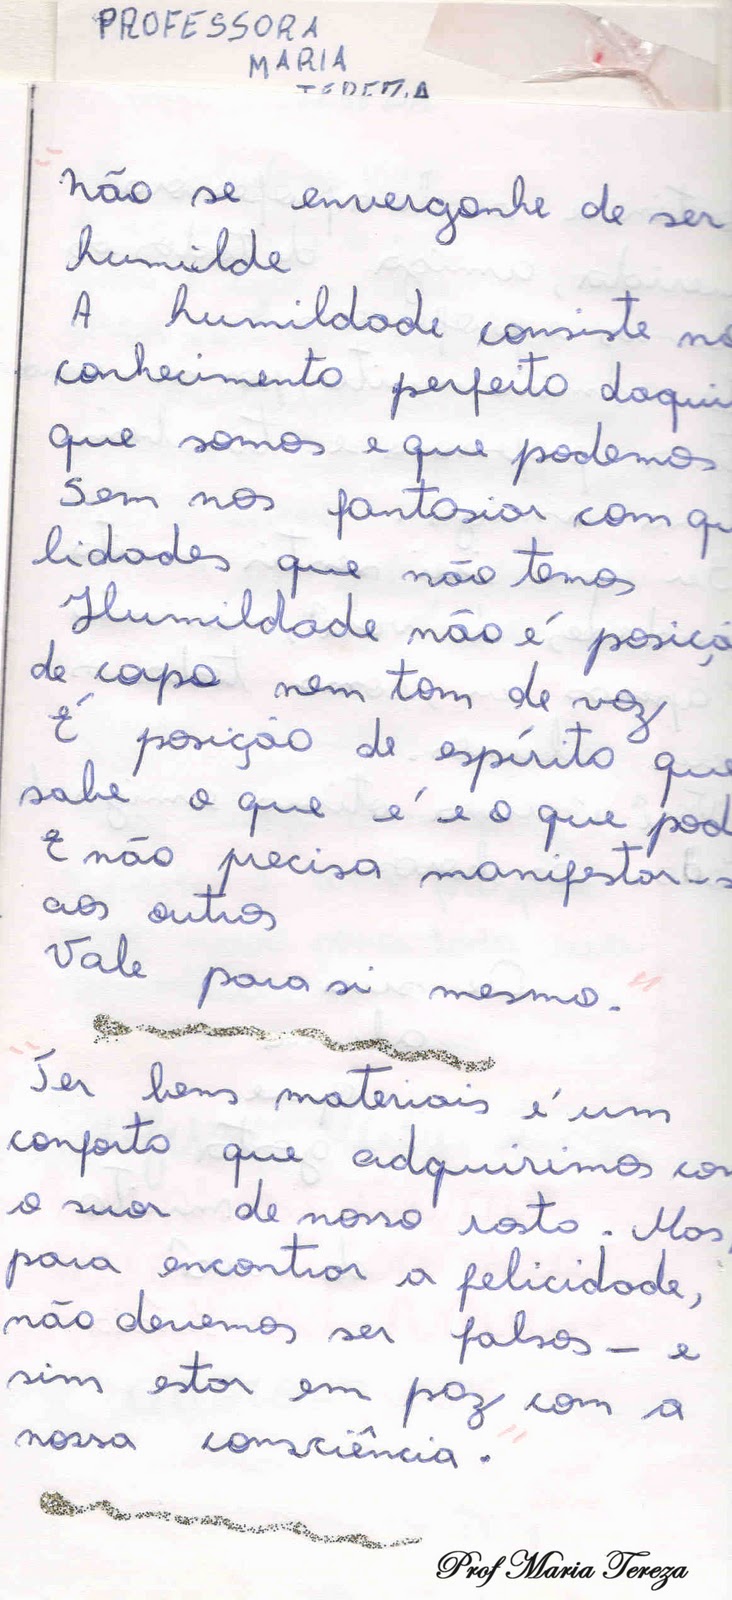 PROFESSORA
MARIA
TEREZA
"Não se envergonhe de ser
humilde
A humildade consiste no
conhecimento perfeito daqui
que somos e que podemos
Sem nos fantasiar com qu
lidades que não temos
Humildade não é posiçã
de capa nem tom de voz
É posição de espírito que
sabe o que é e o que pod
E não precisa manifestar-s
aos outros
Vale para si mesmo."
"Ter bens materiais é um
conforto que adquirimos com
o suor de nosso rosto. Mas,
para encontrar a felicidade,
não devemos ser falsos - e
sim estar em paz com a
nossa consciência."
Prof Maria Tereza